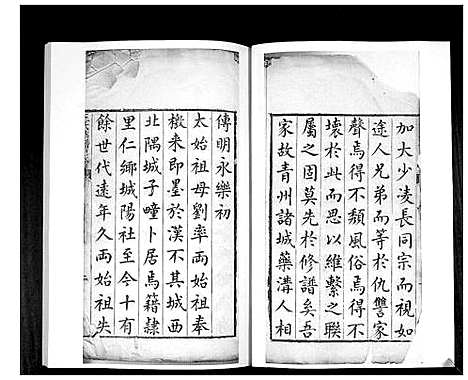 加大少凌長同宗而視如
途人兄弟而等於仇讐家
聲焉得不頹風俗焉得不
壞於此而思以維繫之聯
屬之固莫先於修譜矣吾
家故青州諸城藥溝人相
傳明永樂初
太始祖母劉率兩始祖奉
檄來即墨於漢不其城西
北隅城子疃卜居焉籍隸
里仁鄉城陽社至今十有
餘世代遠年久兩始祖失